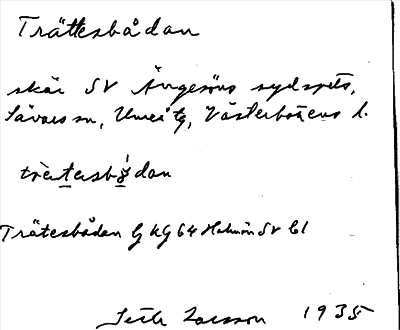 Trättesbådan
skär SV Ängesöns sydspets,
Sävars sn, Umeå tg, Västerbottens l.
Trätesbådan G KG 64 Holmön SV C1
Larsson 1935